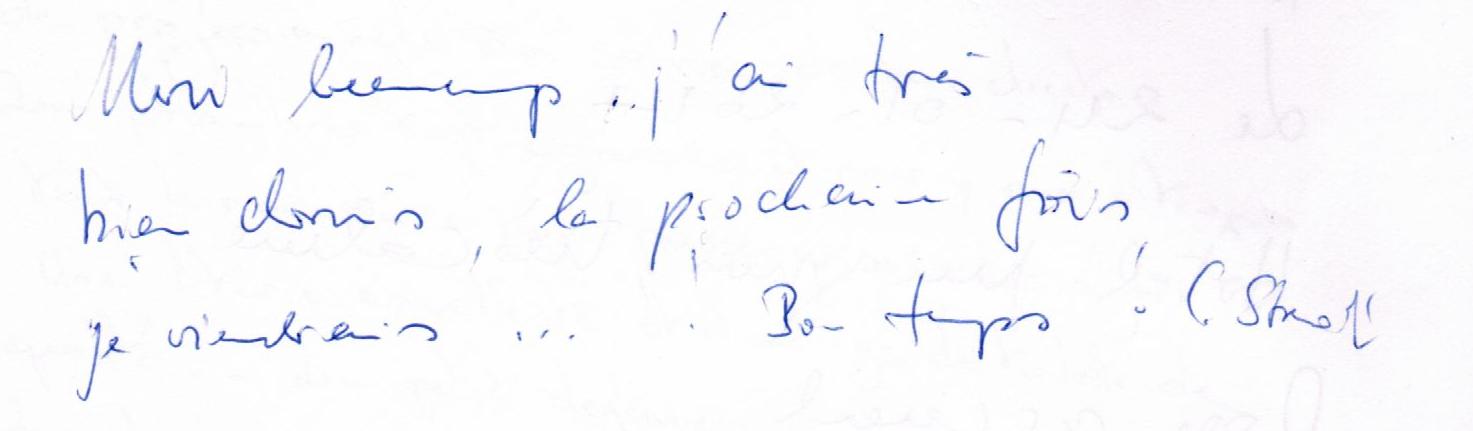 Merci beaucoup .. j'ai très
bien dormis, la prochaine fois,
je viendrais ... ! Bon temps !